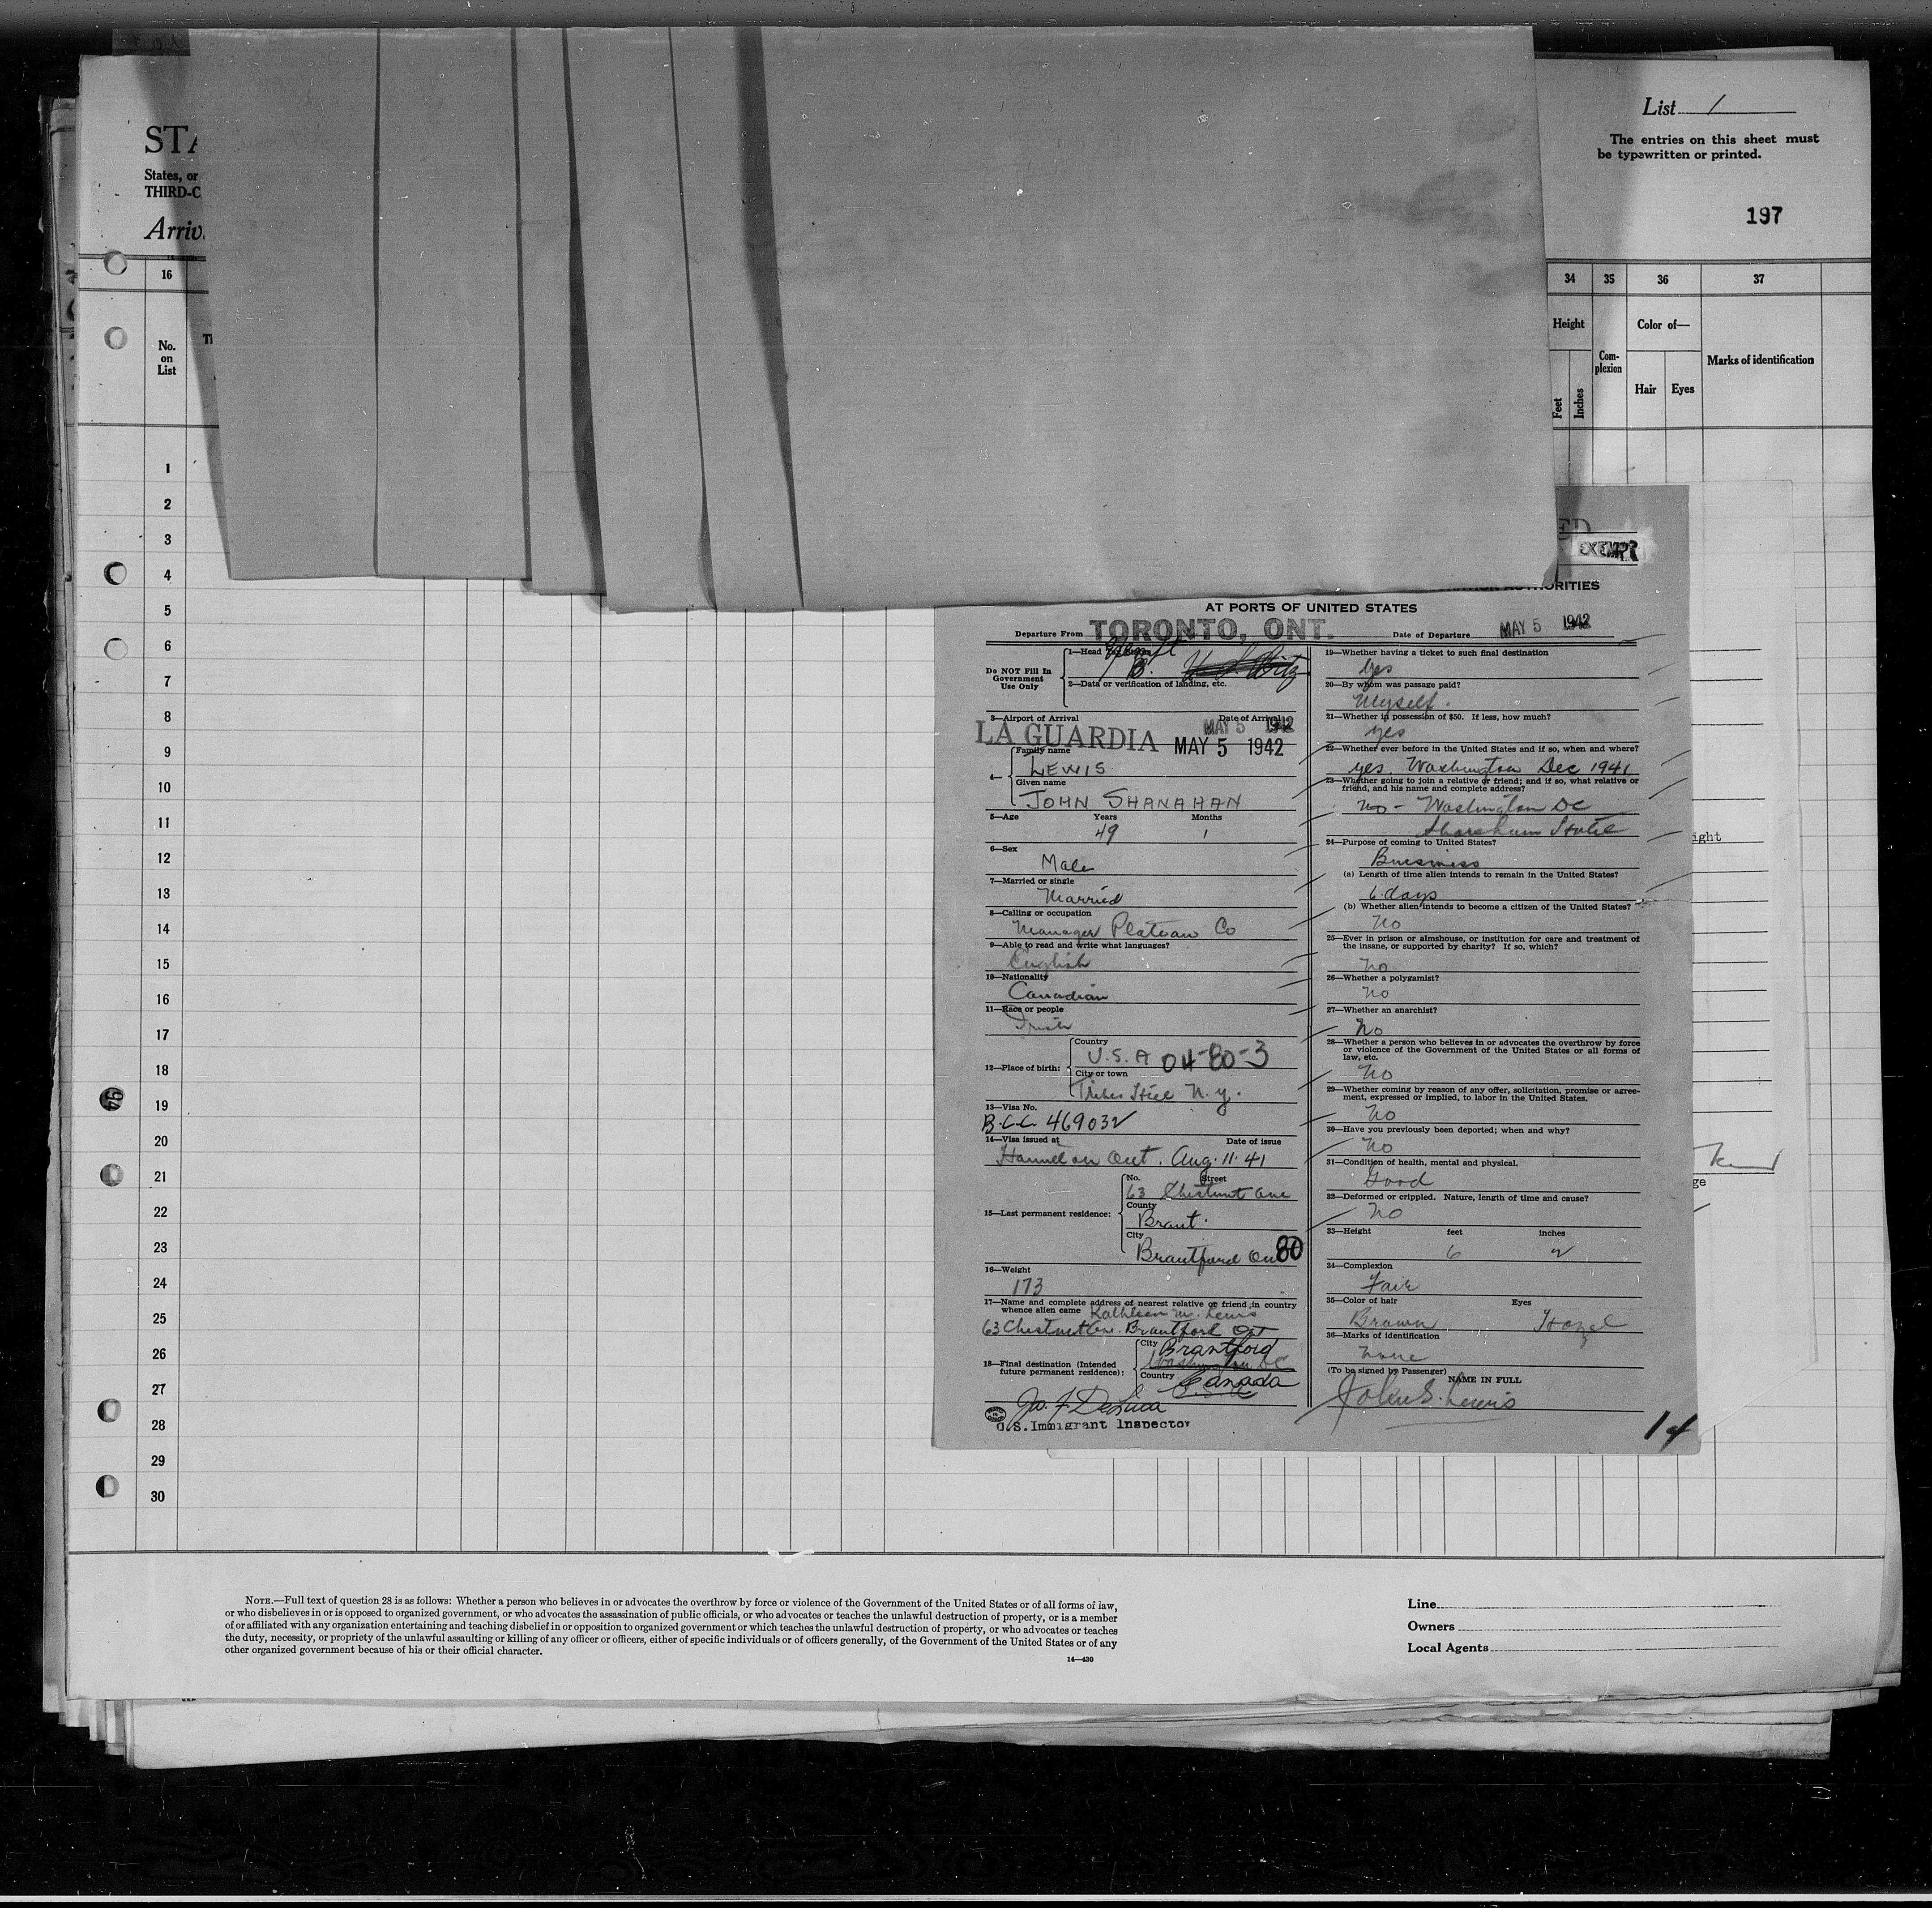 STA
States, or
THIRD-C
Arriv
List 1
The entries on this sheet must
be typewritten or printed.
197
16
34 35 36 37
No.
on
List
Height
Feet
Inches
Com-
plexion
Color of—
Hair Eyes
Marks of identification
1
2
3
4
5
6
7
8
9
10
11
12
13
14
15
16
17
18
19
20
21
22
23
24
25
26
27
28
29
30
94
ED
EXEMPT
AUTHORITIES
AT PORTS OF UNITED STATES
Departure From TORONTO, ONT. Date of Departure MAY 5 1942
Do NOT Fill In
Government
Use Only
1—Head
2—Data or verification of landing, etc.
3—Airport of Arrival Date of Arrival
MAY 5 1942
LA GUARDIA MAY 5 1942
4—
Family name
LEWIS
Given name
JOHN SHANAHAN
5—Age Years Months
49 1
6—Sex
Male
7—Married or single
Married
8—Calling or occupation
Manager Plateau Co
9—Able to read and write what languages?
English
10—Nationality
Canadian
11—Race or people
Irish
12—Place of birth:
Country
U.S.A 04-80-3
City or town
Tribes Hill N.Y.
13—Visa No.
B.C.C. 469032
14—Visa issued at Date of issue
Hamilton Ont. Aug. 11. 41
15—Last permanent residence:
No. Street
63 Chestnut Ave
County
Brant.
City
Brantford Ont 80
16—Weight
173
17—Name and complete address of nearest relative or friend in country
whence alien came Kathleen M. Lewis
63 Chestnut Ave. Brantford Ont
18—Final destination (Intended
future permanent residence):
City Brantford
Washington DC
Country Canada
U.S.A.
U.S. Immigrant Inspector
19—Whether having a ticket to such final destination
Yes
20—By whom was passage paid?
Myself.
21—Whether in possession of $50. If less, how much?
yes
22—Whether ever before in the United States and if so, when and where?
yes. Washington Dec 1941
23—Whether going to join a relative or friend; and if so, what relative or
friend, and his name and complete address?
no - Washington DC
Shoreham Hotel
24—Purpose of coming to United States?
Buisiness
(a) Length of time alien intends to remain in the United States?
6 days
(b) Whether alien intends to become a citizen of the United States?
No
25—Ever in prison or almshouse, or institution for care and treatment of
the insane, or supported by charity? If so, which?
No
26—Whether a polygamist?
No
27—Whether an anarchist?
No
28—Whether a person who believes in or advocates the overthrow by force
or violence of the Government of the United States or all forms of
law, etc.
No
29—Whether coming by reason of any offer, solicitation, promise or agree-
ment, expressed or implied, to labor in the United States.
No
30—Have you previously been deported; when and why?
No
31—Condition of health, mental and physical.
Good
32—Deformed or crippled. Nature, length of time and cause?
No
33—Height feet inches
6 2
34—Complexion
Fair
35—Color of hair Eyes
Brown Hazel
36—Marks of identification
None
(To be signed by Passenger) NAME IN FULL
John S. Lewis
14
ight
ge
NOTE.—Full text of question 28 is as follows: Whether a person who believes in or advocates the overthrow by force or violence of the Government of the United States or of all forms of law,
or who disbelieves in or is opposed to organized government, or who advocates the assassination of public officials, or who advocates or teaches the unlawful destruction of property, or is a member
of or affiliated with any organization entertaining and teaching disbelief in or opposition to organized government or which teaches the unlawful destruction of property, or who advocates or teaches
the duty, necessity, or propriety of the unlawful assaulting or killing of any officer or officers, either of specific individuals or of officers generally, of the Government of the United States or of any
other organized government because of his or their official character.
14—430
Line
Owners
Local Agents